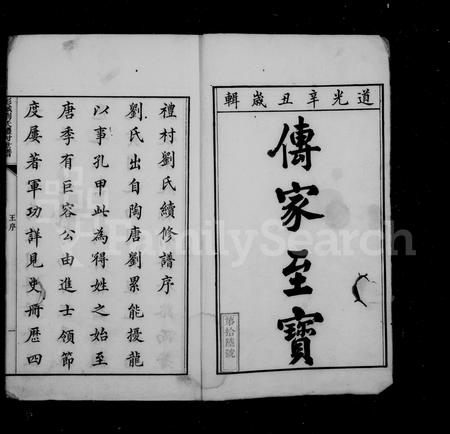 道光辛丑歲輯
傳家至寶
第拾陸號
禮村劉氏續修譜序
劉氏出自陶唐劉累能擾龍
以事孔甲此為得姓之始至
唐季有巨容公由進士領節
度屢著軍功詳見史冊歴四
王序
一
FamilySearch